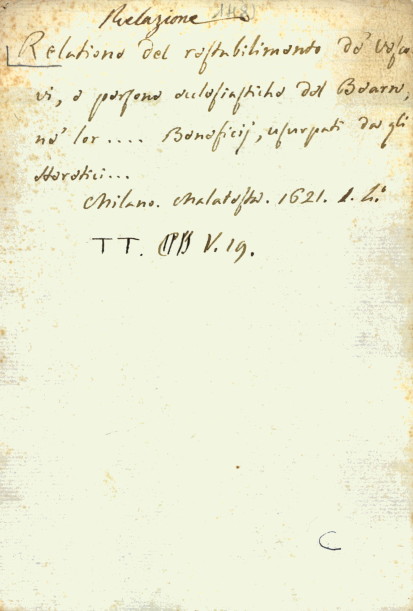 Relazione
Relatione del restabilimento de' Vesco
vi, e persone eclesiastiche del Bearne,
ne' lor .... Beneficij, usurpati da gli
Heretici...
Milano. Malatesta. 1621. 1. 4.°
TT. V. 19.
C